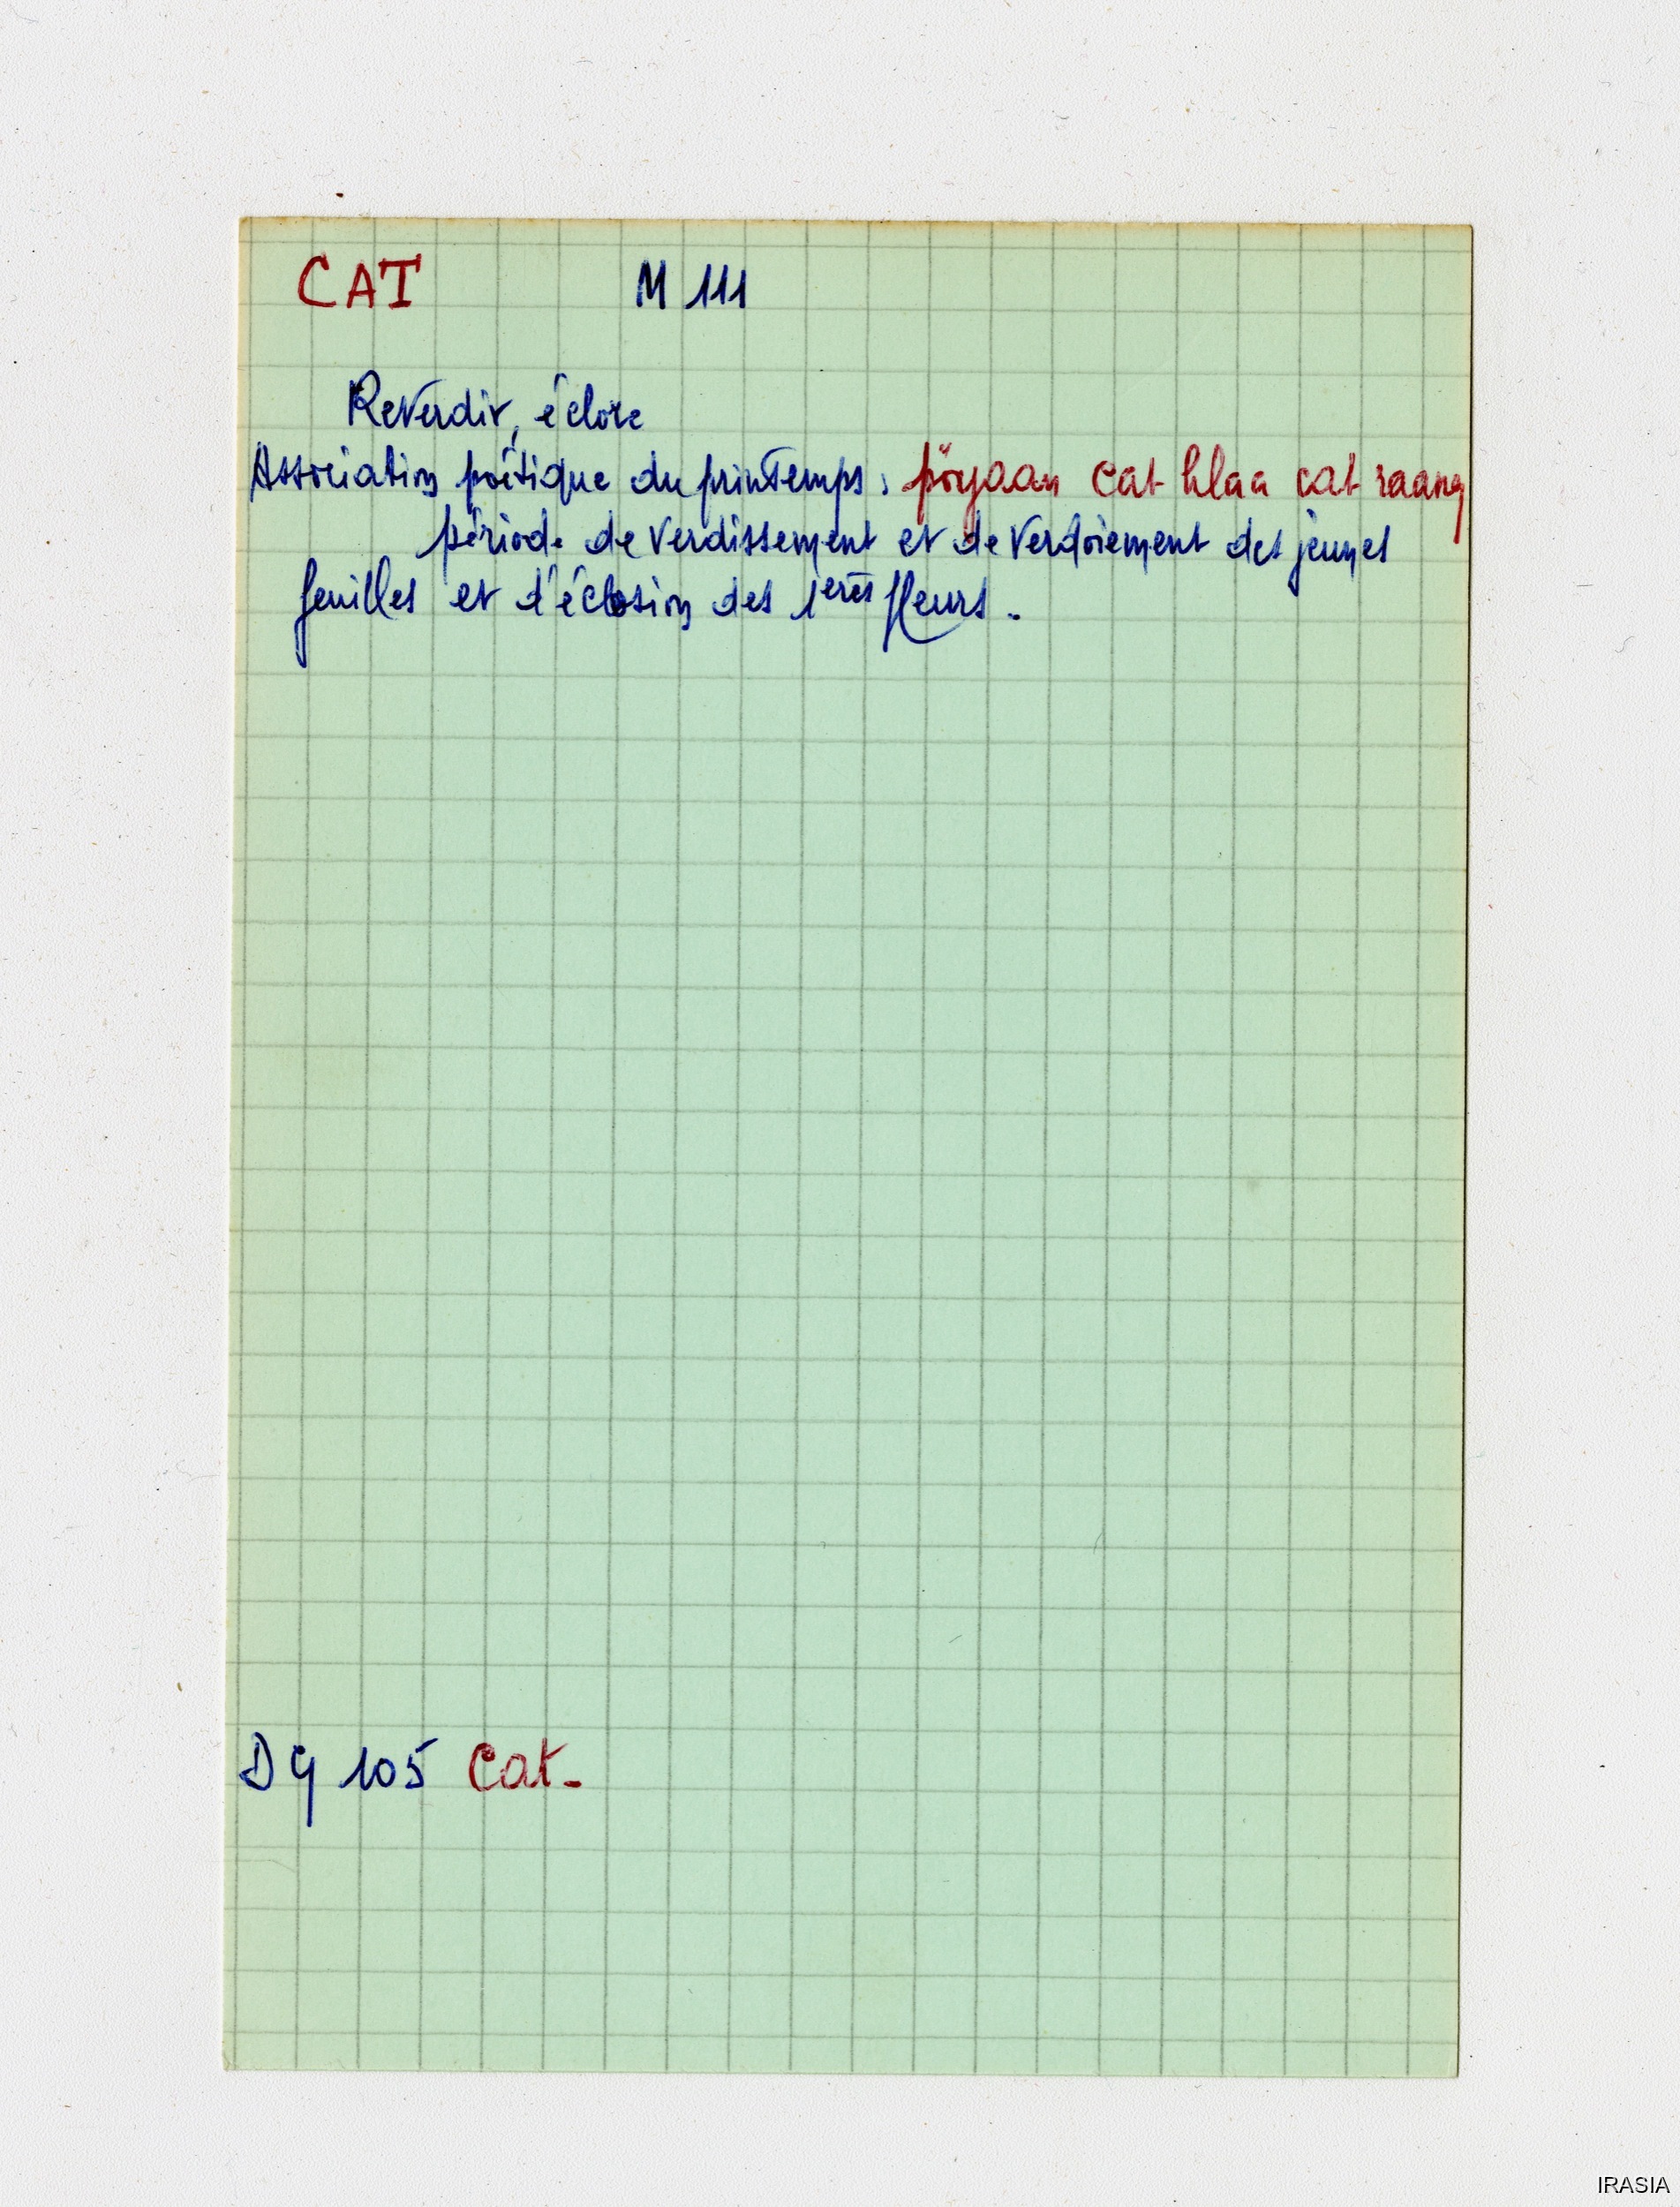 CAT M 111
Reverdir, éclore
Association poétique du printemps : pöyaan cat hlaa cat raang
période de verdissement et de verdoiement des jeunes
feuilles et d'éclosion des 1eres fleurs.
DG 105 Cat-
IRASIA